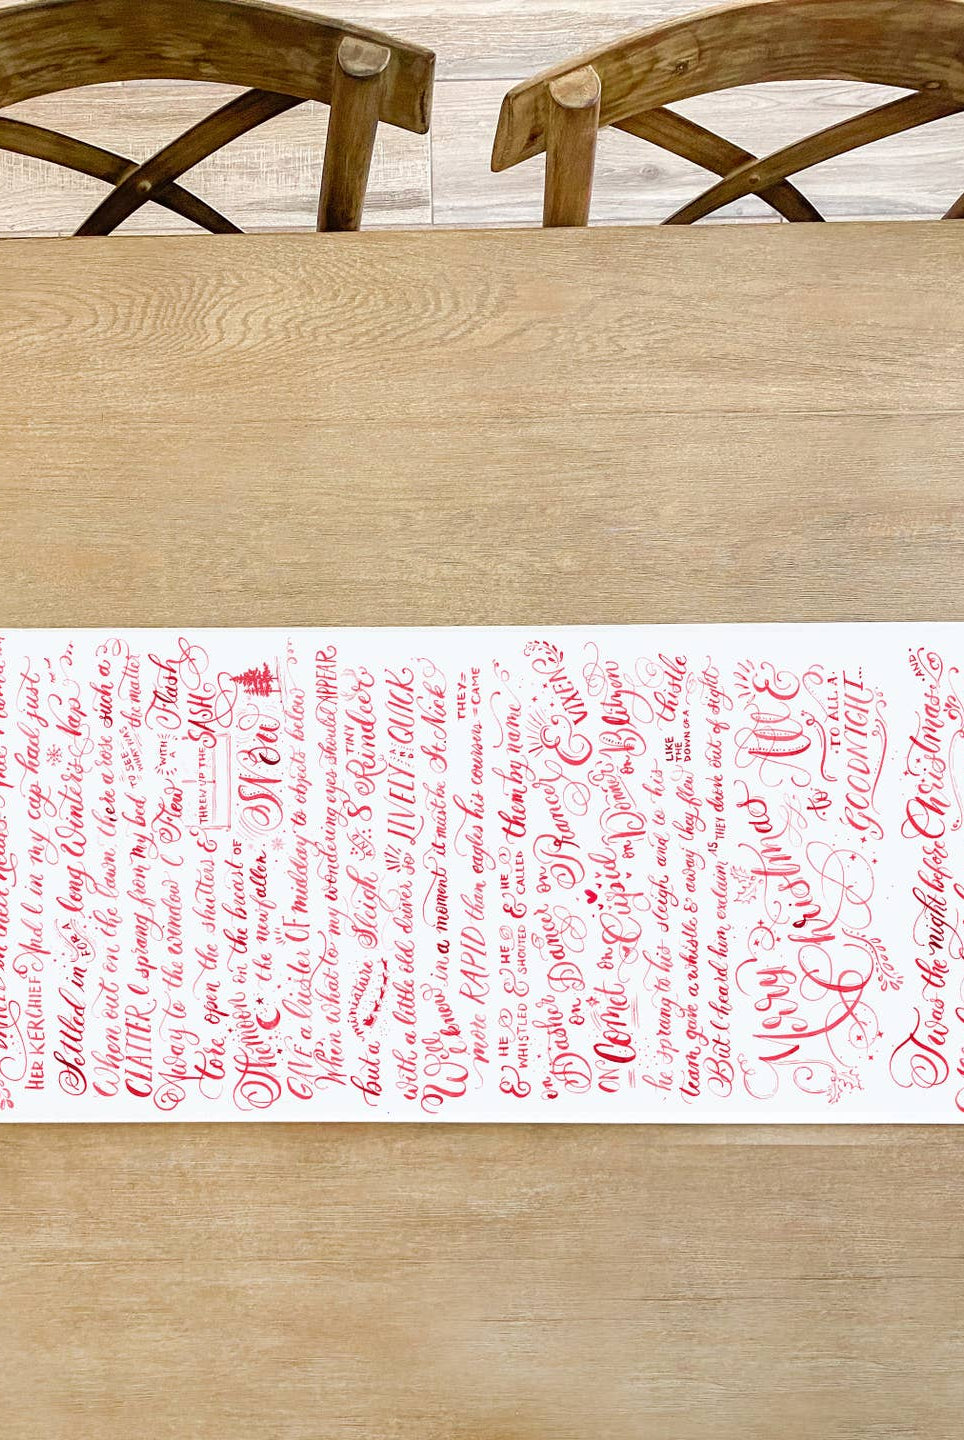 HER KERCHIEF And I in my cap had just
Settled in FOR A long Winter's nap
When out on the lawn there arose such a
CLATTER, I sprang from my bed TO SEE WHAT WAS the matter
Away to the window I Flew WITH A Flash
tore open the shutters & THREW UP THE SASH
The moon on the breast OF
the new fallen SNOW
GIVE a luster OF midday to objects below
When what to my wondering eyes should APPEAR
but a miniature Sleigh AND 8 TINY Reindeer
with a little old driver so LIVELY AND QUICK
Will know in a moment it must be St. Nick
more RAPID than eagles his coursers THEY CAME
& HE WHISTLED & HE SHOUTED & HE CALLED them by name
on Dasher on Dancer on Prancer & VIXEN
ON Comet on Cupid on Donner on Blitzen
he sprang to his sleigh and to his
team gave a whistle & away they flew LIKE THE DOWN OF A thistle
But I heard him exclaim AS THEY drove out of sight
Merry Christmas to ALL &
TO ALL A
GOODNIGHT...
Twas the night before Christmas AND